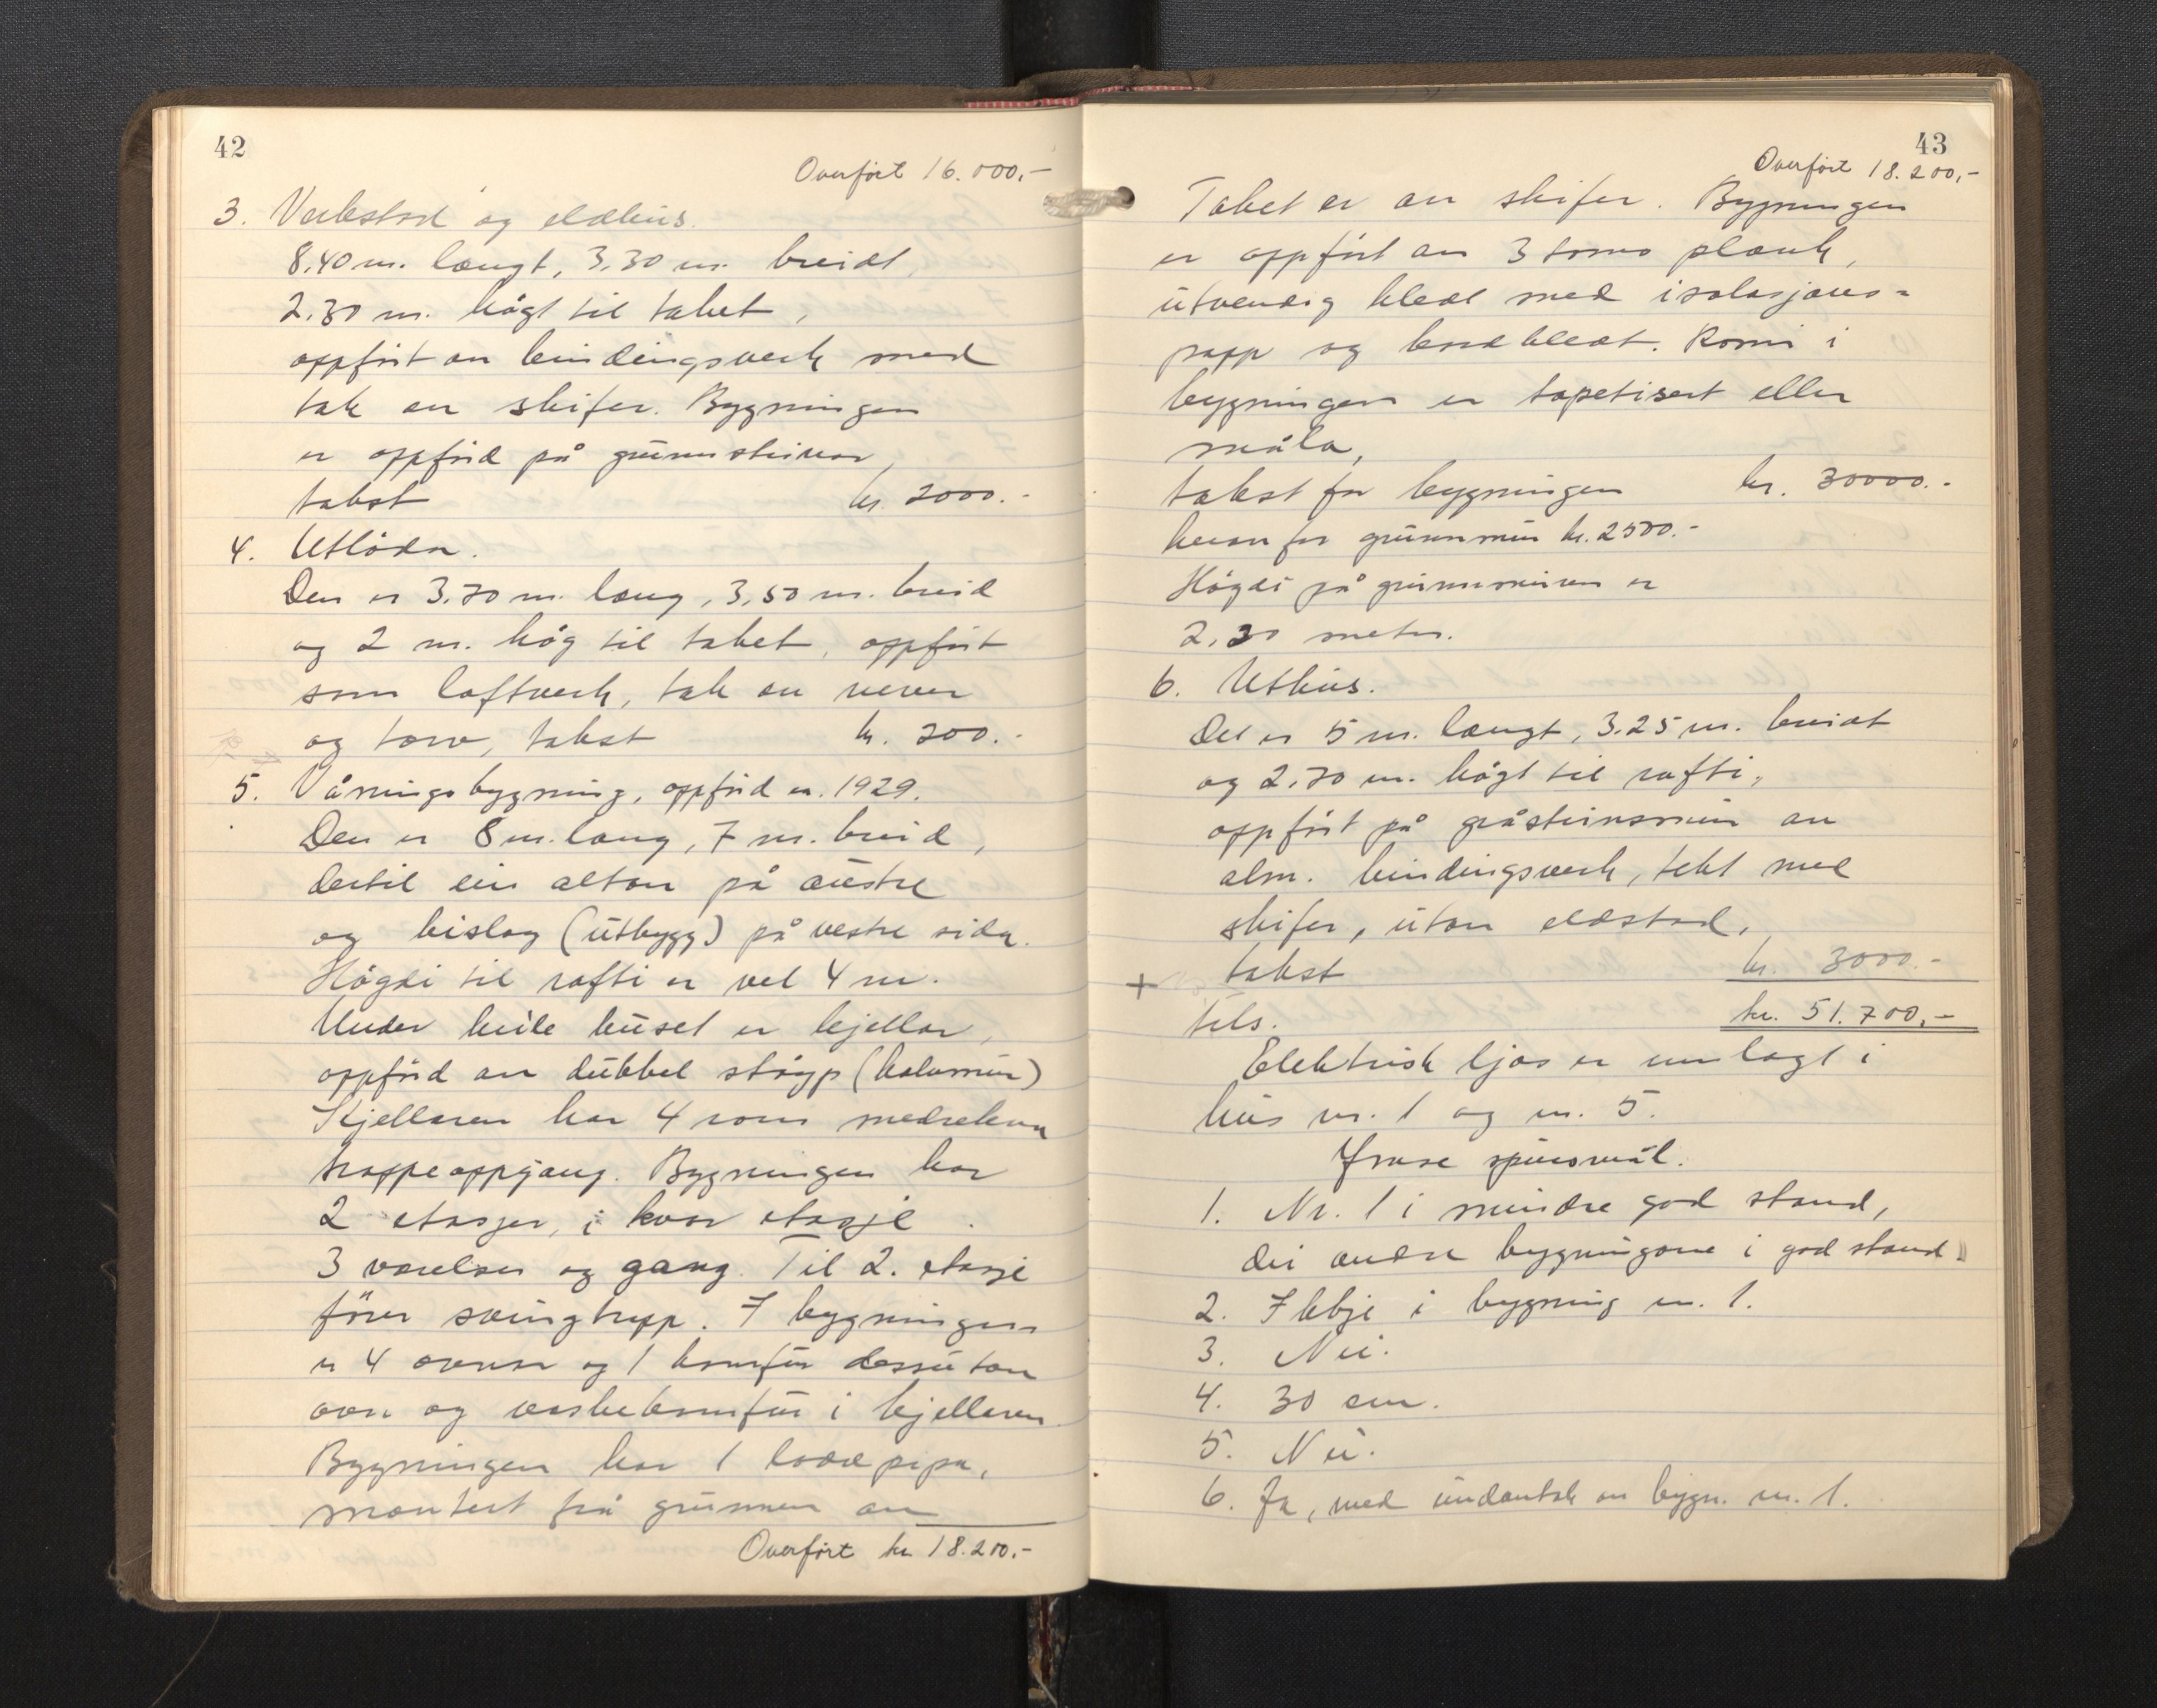 42
Overført 16.000,-
3. Verkstad og eldhus.
8,40 m. langt, 3,30 m. breidt,
2.30 m. högt til taket,
oppfört av bindingsverk med
tak av skifer. Bygningen
er oppförd på grunnsteinar,
takst kr. 2000.-
4. Utlöda.
Den er 3,70 m. lang, 3,50 m. breid
og 2 m. hög til taket, oppfört
som laftverk, tak av never
og torv, takst kr. 200.-
5. Våningsbygning, oppförd er. 1929.
Den er 8 m. lang, 7 m. breid,
dertil ein altan på austre
og bislag (utbygg) på vestre sida.
Högdi til rafti er vel 4 m.
Under heile huset er kjellar,
oppförd av dubbel stöyp (holomur)
Kjellaren har 4 rom medrekna
trappeoppgang. Bygningen har
2 etasjer, i kvar etasje
3 værelser og gang. Til 2. etasje
förer svingtrapp. I bygningen
er 4 ovnar og 1 komfur dessutan
ovn og vaskekomfur i kjellaren.
Bygningen har 1 lodd pipa,
montert frå grunnen av
Overført kr 18.200.-
43
Overført 18.200,-
Taket er av skifer. Bygningen
er oppfört av 3 toms plank,
utvendig kledt med isolasjons-
papp og bordkledt. Romi i
bygningen er tapetisert eller
måla,
takst for bygningen kr. 30000.-
herav for grunnmur kr. 2500.-
Högdi på grunnmuren er
2,20 meter.
6. Uthus.
Det er 5 m. langt, 3.25 m. breidt
og 2,70 m. högt til rafti,
oppfört på gråsteinsmur av
alm. bindingsverk, tekt med
skifer, utan eldstad,
+ takst kr. 3000.-
tils. kr. 51.700,-
Elektrisk ljos er innlagt i
hus nr. 1 og nr. 5.
Ymse spursmål.
1. Nr. 1 i mindre god stand,
dei andre bygningane i god stand.
2. Ikkje i bygning nr. 1.
3. Nei.
4. 30 cm.
5. Nei.
6. Ja, med undantak av bygn. nr. 1.